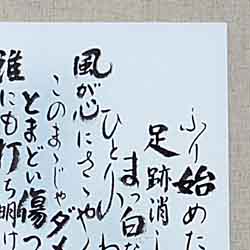 ふり始めた
足跡消し
まっ白な
ひとりのわ
風が心にさゝや
このまゝじゃダメ
とまどい傷つ
誰にも打ち明け